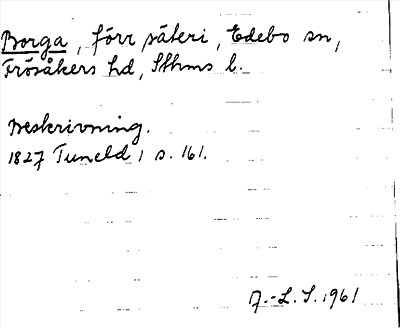 Borga, förr säteri, Edebo sn,
Frösåkers hd, Sthms l.
Beskrivning.
1827 Tuneld 1 s. 161.
A.-L. S. 1961